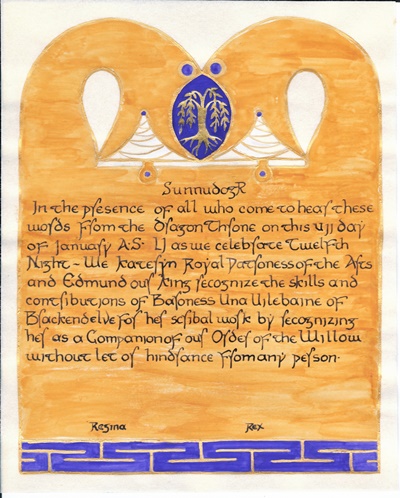 In the presence of all who come to hear these
words from the dragon Throne on this vii day
of January A·S· LI as we celebrate Twelfth
Night ~ We Kateryn Royal Patroness of the Arts
and Edmund our King recognize the skills and
contributions of Baroness Una Vilebaine of
Brackendelve for her scribal work by recognizing
her as a Companion of our Order of the Willow
without let or hindrance from any person·
Regina Rex